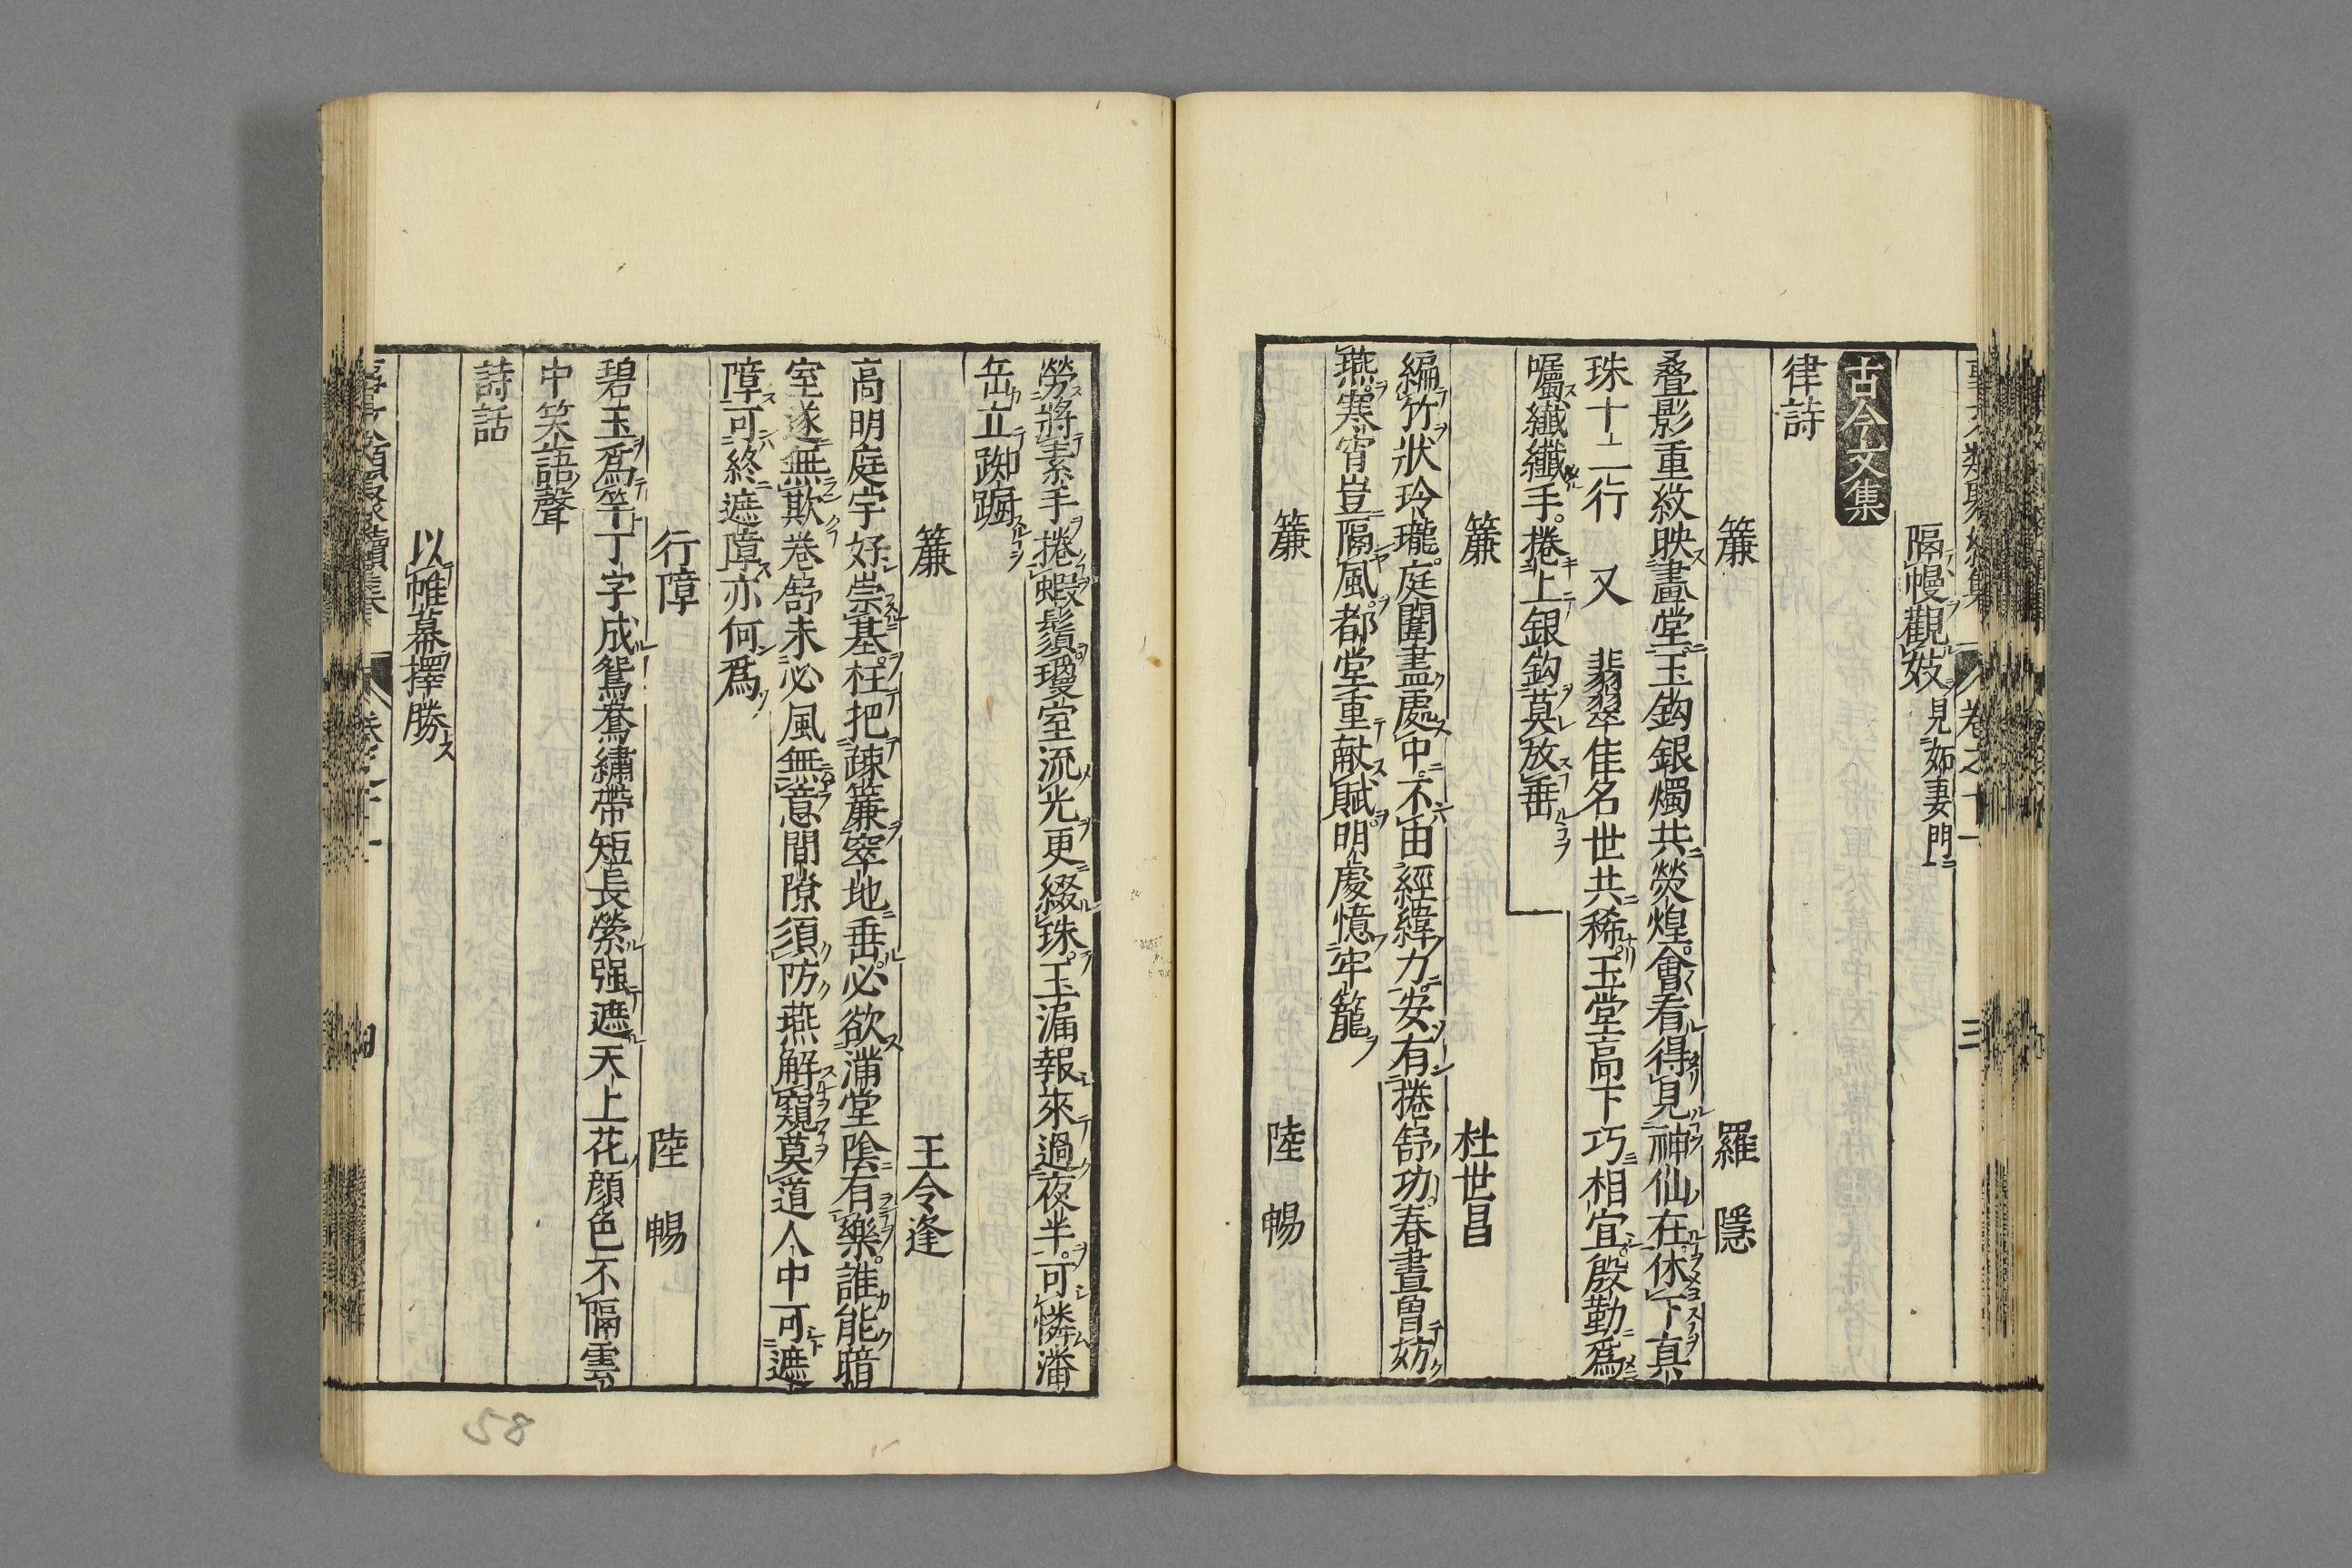 隔幔觀妓 見妬妻門
古今文集
律詩
簾 羅隱
叠影重紋映畫堂玉鈎銀燭共熒煌會看得見神仙在休下真
珠十二行 又 翡翠佳名世共稀玉堂高下巧相宜殷勤爲
囑纖纖手捲上銀鈎莫放垂
簾 杜世昌
編竹狀玲瓏庭闈盡處中不由經緯力安有捲舒功春晝曾妨
燕寒宵豈隔風都堂重獻賦明慶憶牢籠
簾 陸暢
勞將素手捲蝦鬚瓊室流光更綴珠玉漏報來過夜半可憐潘
岳立踟蹰
簾 王令逢
高明庭宇好崇基枉把疎簾窣地垂必欲滿堂陰有樂誰能暗
室遂無欺卷舒未必風無意間隙須防燕解窺莫道人中可遮
障可終遮障亦何爲
行障 陸暢
碧玉爲竿丁字成鴛鴦繡帶短長縈强遮天上花顔色不隔雲
中笑語聲
詩話
以帷幕擇勝